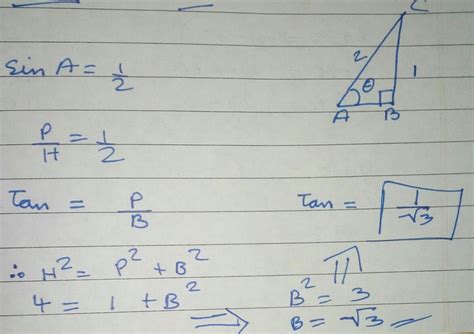 C
Sin A = 1/2
2
θ
1
A B
P/H = 1/2
Tan = P/B
Tan = 1/√3
∴ H² = P² + B²
B² = 3
4 = 1 + B² ⇒
B = √3